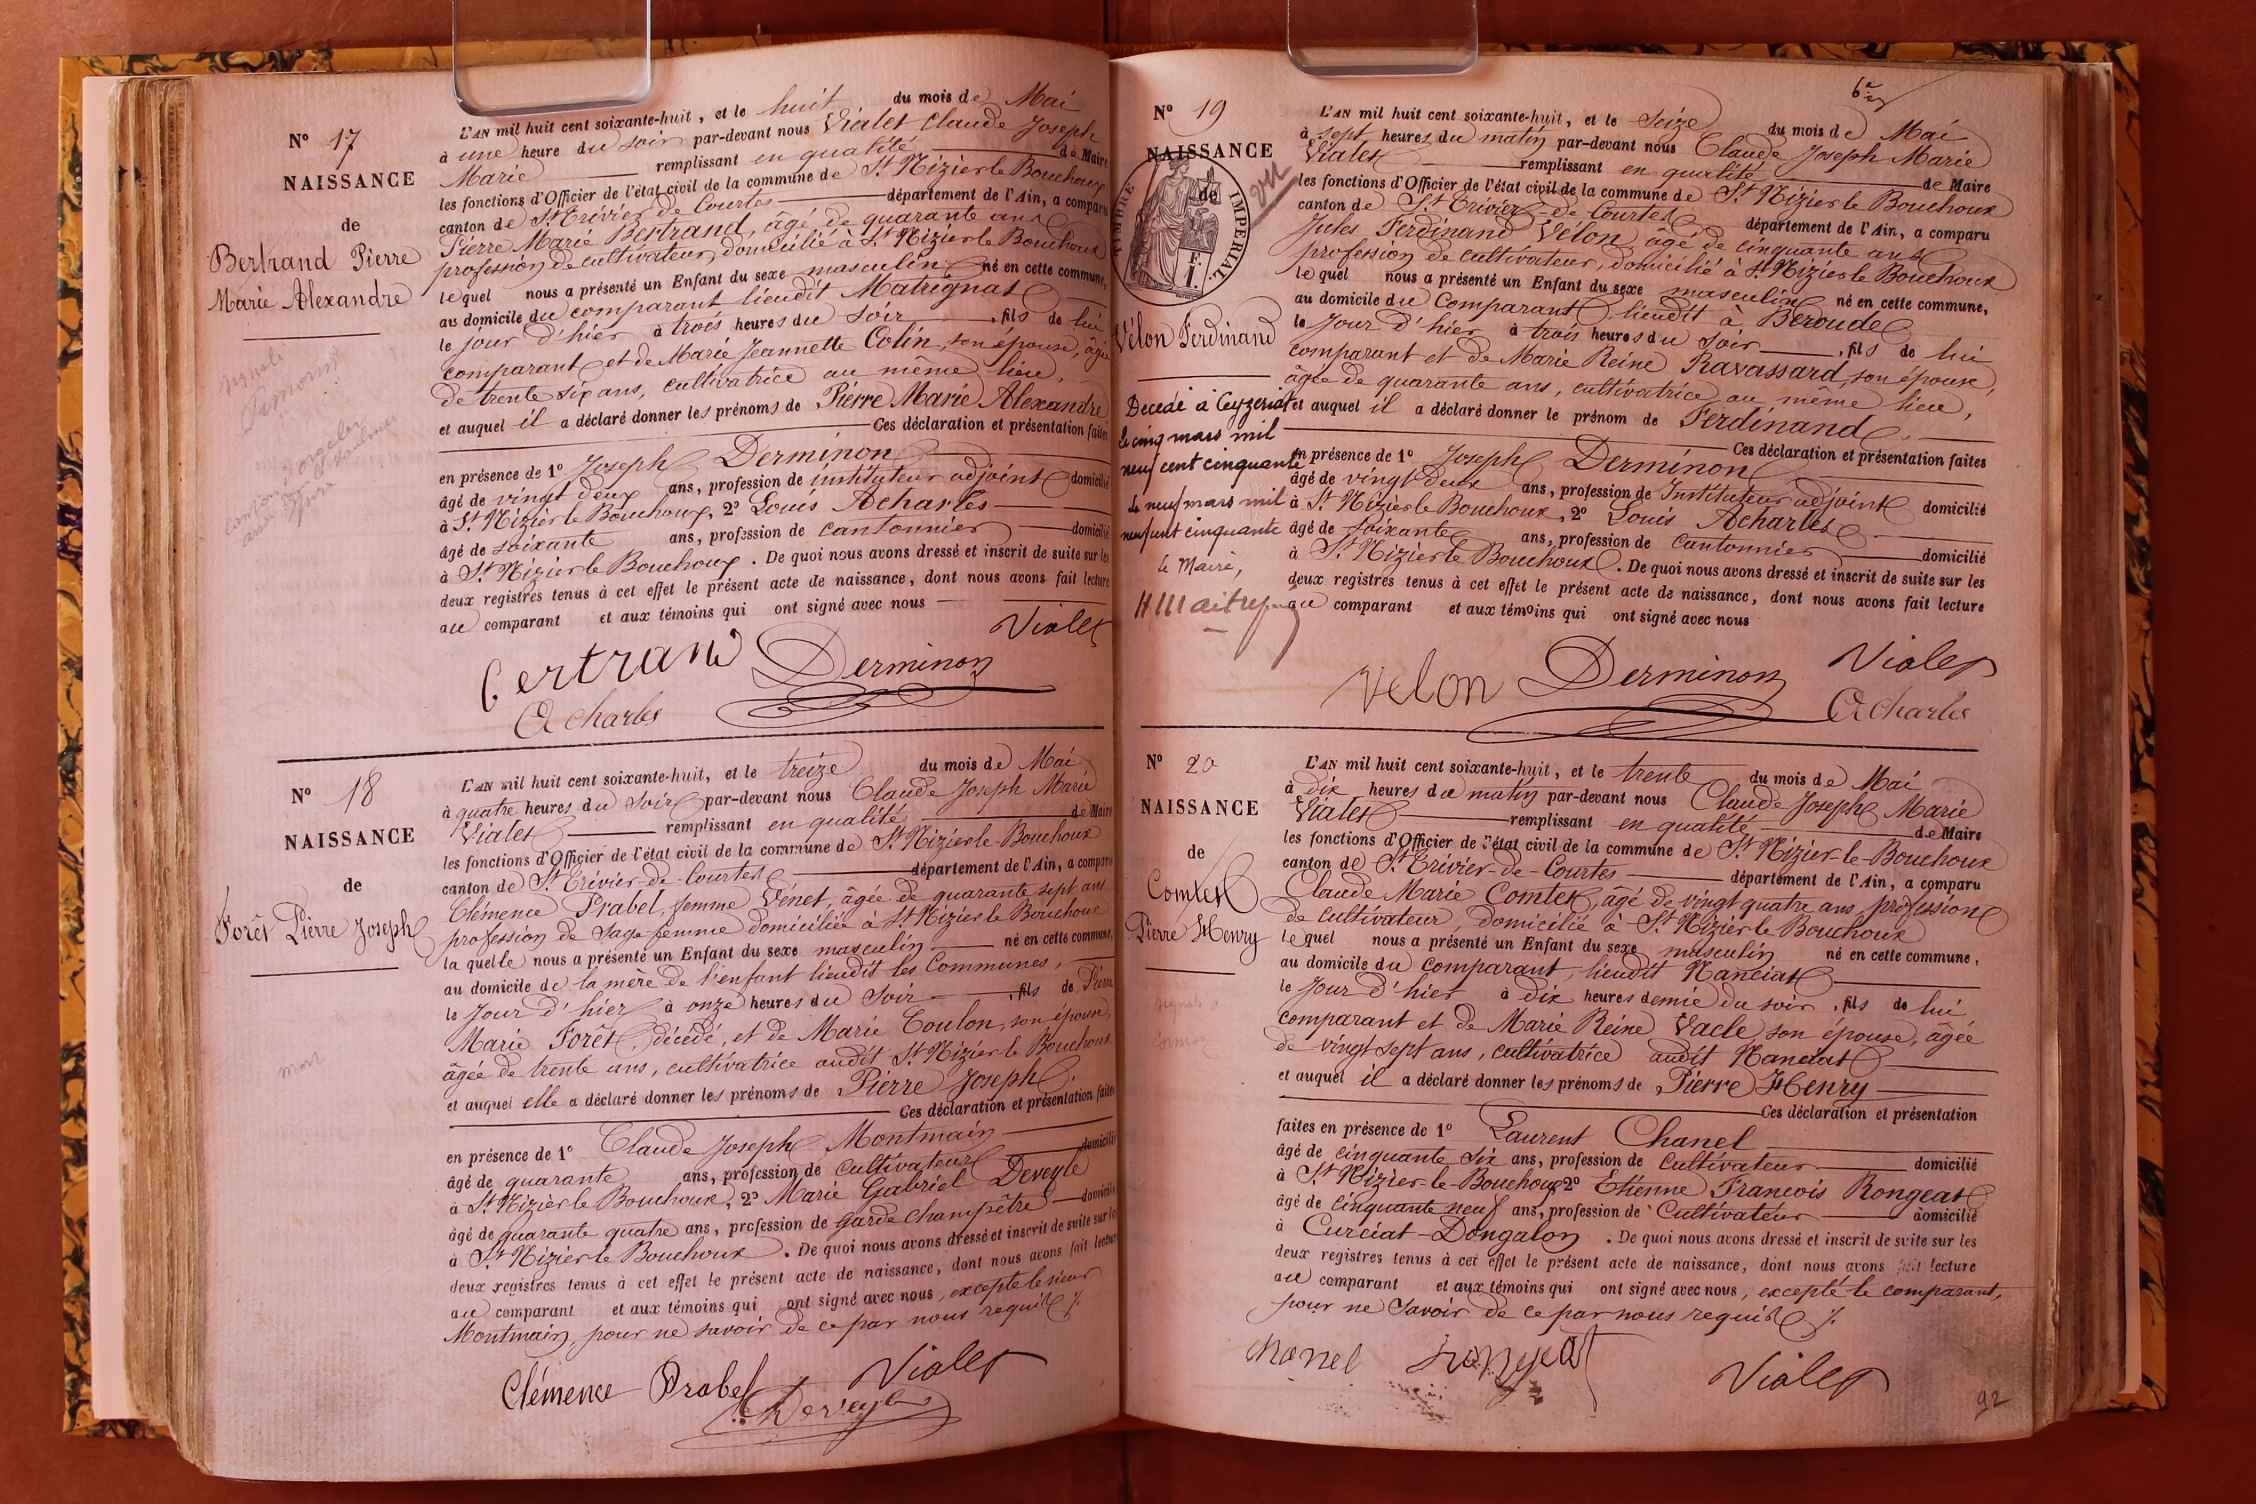 N° 17
NAISSANCE
de
Bertrand Pierre
Marie Alexandre
L'AN mil huit cent soixante-huit, et le huit du mois de Mai
à une heure du soir par-devant nous Vialet Claude Joseph
Marie remplissant en qualité de Maire
les fonctions d'Officier de l'état civil de la commune de St Nizier le Bouchoux
canton de St Trivier de Courtes département de l'Ain, a comparu
Pierre Marie Bertrand, âgé de quarante ans
profession de cultivateur, domicilié à St Nizier le Bouchoux
lequel nous a présenté un Enfant du sexe masculin né en cette commune,
au domicile du comparant lieudit Matrignat
le jour d'hier à trois heures du soir, fils de lui
comparant et de Marie Jeannette Colin, son épouse, âgée
de trente six ans, cultivatrice au même lieu,
et auquel il a déclaré donner les prénoms de Pierre Marie Alexandre
Ces déclaration et présentation faites
en présence de 1° Joseph Derminon
âgé de vingt deux ans, profession de instituteur adjoint domicilié
à St Nizier le Bouchoux, 2° Louis Acharles
âgé de soixante ans, profession de cantonnier domicilié
à St Nizier le Bouchoux. De quoi nous avons dressé et inscrit de suite sur les
deux registres tenus à cet effet le présent acte de naissance, dont nous avons fait lecture
au comparant et aux témoins qui ont signé avec nous
Vialet
Bertrand Derminon
Acharles
N° 18
NAISSANCE
de
Forêt Pierre Joseph
mort
L'AN mil huit cent soixante-huit, et le treize du mois de Mai
à quatre heures du soir par-devant nous Claude Joseph Marie
Vialet remplissant en qualité de Maire
les fonctions d'Officier de l'état civil de la commune de St Nizier le Bouchoux
canton de St Trivier-de-Courtes département de l'Ain, a comparu
Clémence Prabel, femme Vénet, âgée de quarante sept ans
profession de Sage femme domiciliée à St Nizier le Bouchoux
laquelle nous a présenté un Enfant du sexe masculin né en cette commune,
au domicile de la mère de l'enfant lieudit les Communes,
le Jour d'hier à onze heures du soir, fils de Pierre
Marie Forêt, décédé, et de Marie Coulon, son épouse,
âgée de trente ans, cultivatrice audit St Nizier le Bouchoux
et auquel elle a déclaré donner les prénoms de Pierre Joseph.
Ces déclaration et présentation faites
en présence de 1° Claude Joseph Montmain
âgé de quarante ans, profession de cultivateur domicilié
à St Nizier le Bouchoux, 2° Marie Gabriel Deveyle
âgé de quarante quatre ans, profession de Garde champêtre domicilié
à St Nizier le Bouchoux. De quoi nous avons dressé et inscrit de suite sur les
deux registres tenus à cet effet le présent acte de naissance, dont nous avons fait lecture
au comparant et aux témoins qui ont signé avec nous, excepté le sieur
Montmain, pour ne savoir de ce par nous requis
Clémence Prabel Vialet
Deveyle
6e
N° 19
NAISSANCE
de
TIMBRE IMPÉRIAL
1 F.
Vélon Ferdinand
Décédé à Ceyzeriat
le cinq mars mil
neuf cent cinquante
Le neuf mars mil
neuf cent cinquante
le Maire,
L'AN mil huit cent soixante-huit, et le Seize du mois de Mai
à sept heures du matin par-devant nous Claude Joseph Marie
Vialet remplissant en qualité de Maire
les fonctions d'Officier de l'état civil de la commune de St Nizier le Bouchoux
canton de St Trivier-de-Courtes département de l'Ain, a comparu
Jules Ferdinand Vélon, âgé de cinquante ans
profession de cultivateur, domicilié à St Nizier le Bouchoux
lequel nous a présenté un Enfant du sexe masculin né en cette commune,
au domicile du Comparant, lieudit à Beroude
le Jour d'hier à trois heures du soir, fils de lui
comparant et de Marie Reine Ravassard, son épouse,
âgée de quarante ans, cultivatrice au même lieu,
et auquel il a déclaré donner le prénom de Ferdinand.
Ces déclaration et présentation faites
en présence de 1° Joseph Derminon
âgé de vingt deux ans, profession de Instituteur adjoint domicilié
à St Nizier le Bouchoux, 2° Louis Acharles
âgé de soixante ans, profession de cantonnier domicilié
à St Nizier le Bouchoux. De quoi nous avons dressé et inscrit de suite sur les
deux registres tenus à cet effet le présent acte de naissance, dont nous avons fait lecture
au comparant et aux témoins qui ont signé avec nous
Velon Derminon Vialet
Acharles
N° 20
NAISSANCE
de
Comtet
Pierre Henry
L'AN mil huit cent soixante-huit, et le trente du mois de Mai
à dix heures du matin par-devant nous Claude Joseph Marie
Vialet remplissant en qualité de Maire
les fonctions d'Officier de l'état civil de la commune de St Nizier-le-Bouchoux
canton de St Trivier-de-Courtes département de l'Ain, a comparu
Claude Marie Comtet, âgé de vingt quatre ans profession
de cultivateur, domicilié à St Nizier le Bouchoux
lequel nous a présenté un Enfant du sexe masculin né en cette commune,
au domicile du comparant, lieudit Nanciat
le Jour d'hier à dix heures demie du soir, fils de lui
comparant et de Marie Reine Vacle son épouse, âgée
de vingt sept ans, cultivatrice audit Nanciat
et auquel il a déclaré donner les prénoms de Pierre Henry
Ces déclaration et présentation
faites en présence de 1° Laurent Chanel
âgé de cinquante six ans, profession de Cultivateur domicilié
à St Nizier-le-Bouchoux 2° Etienne Francois Rongeat
âgé de cinquante neuf ans, profession de Cultivateur domicilié
à Curciat-Dongalon. De quoi nous avons dressé et inscrit de suite sur les
deux registres tenus à cet effet le présent acte de naissance, dont nous avons fait lecture
au comparant et aux témoins qui ont signé avec nous, excepté le comparant,
pour ne Savoir de ce par nous requis
Chanel Rongeat
Vialet
92